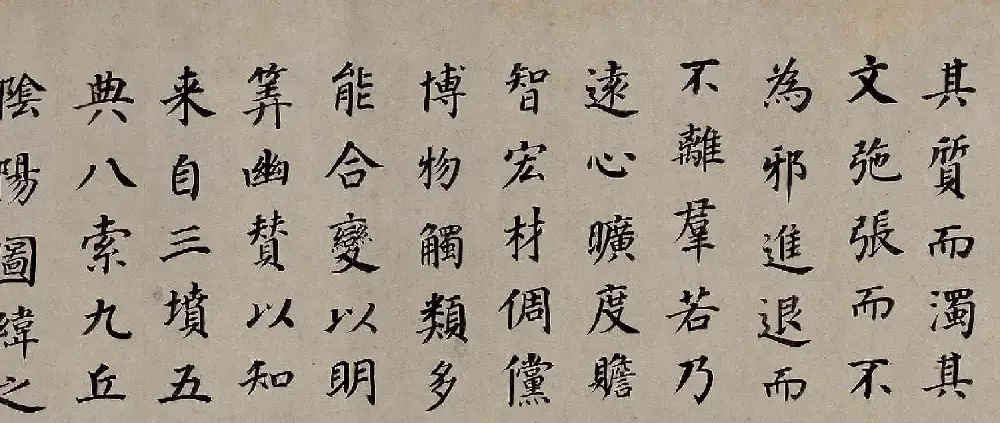 其質而濁其
文弛張而不
為邪進退而
不離羣若乃
遠心曠度贍
智宏材倜儻
博物觸類多
能合變以明
筭幽賛以知
来自三墳五
典八索九丘
陰陽圖緯之